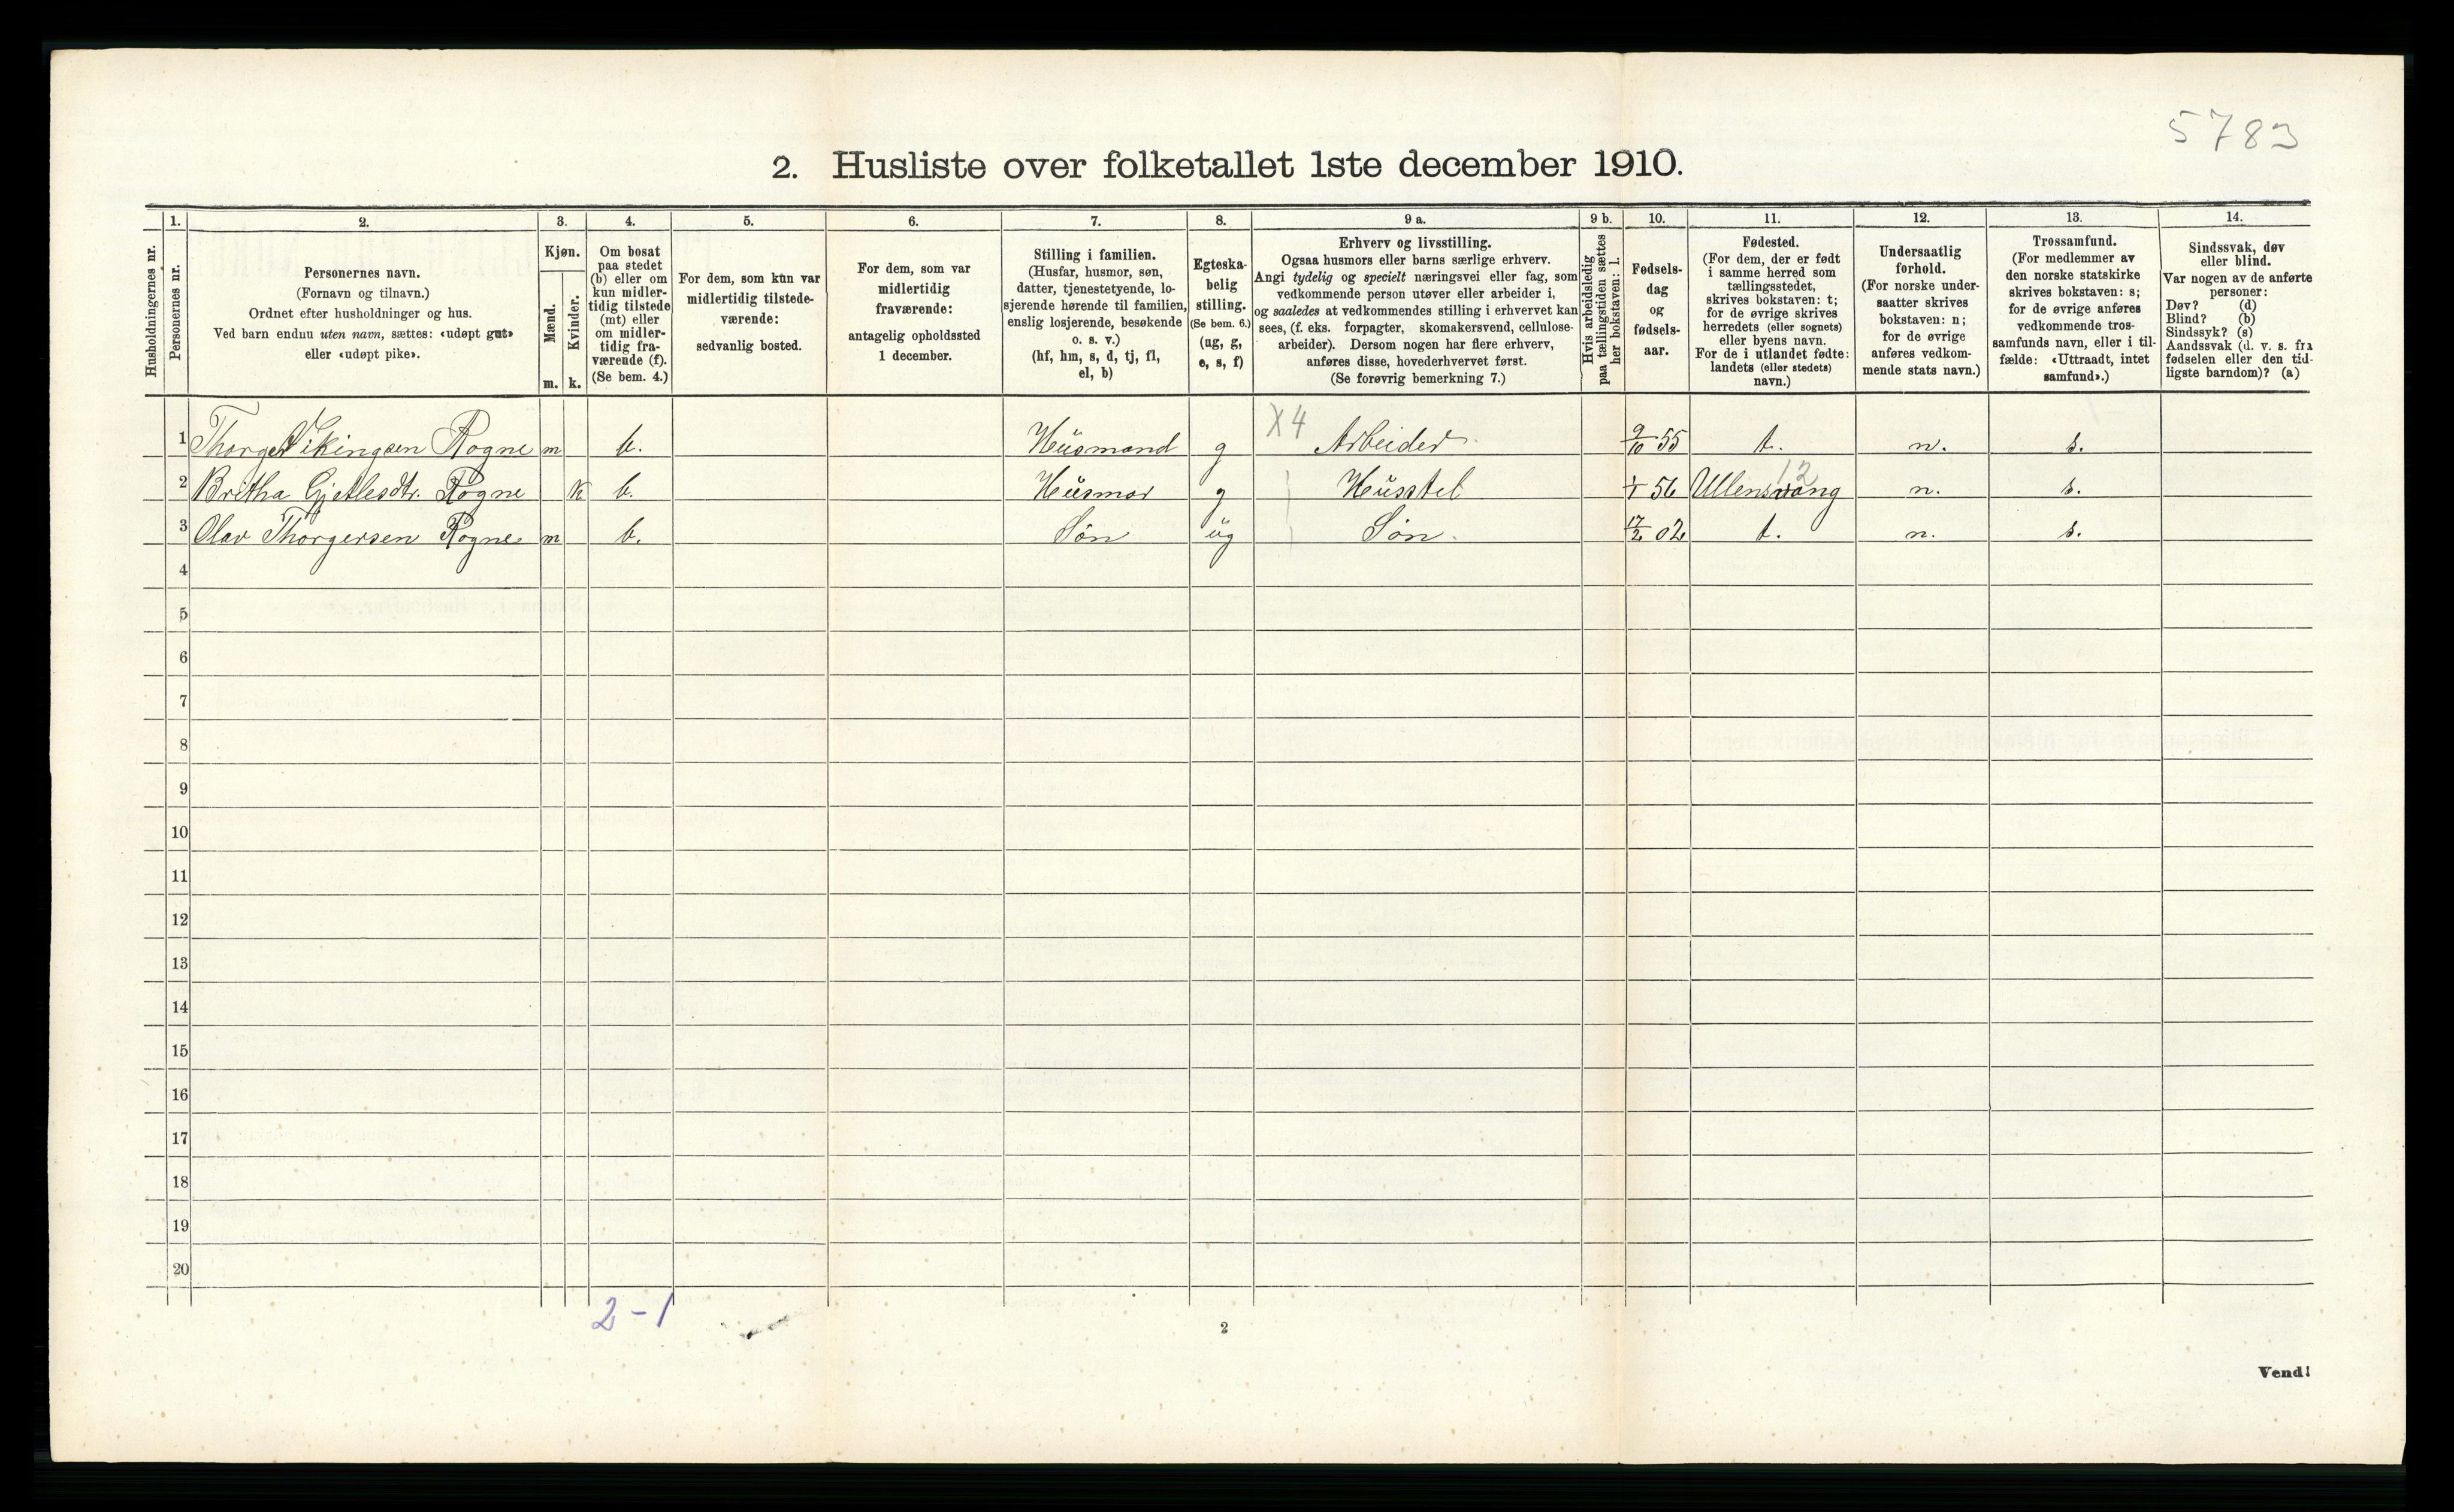 5783
2. Husliste over folketallet 1ste december 1910.
Husholdningernes nr.
1. Personernes nr.
2.
Personernes navn.
(Fornavn og tilnavn.)
Ordnet efter husholdninger og hus.
Ved barn endnu uten navn, sættes: «udøpt gut»
eller «udøpt pike».
3.
Kjøn.
Mænd.
m.
Kvinder.
k.
4.
Om bosat
paa stedet
(b) eller om
kun midler-
tidig tilstede
(mt) eller
om midler-
tidig fra-
værende (f).
(Se bem. 4.)
5.
For dem, som kun var
midlertidig tilstede-
værende:
sedvanlig bosted.
6.
For dem, som var
midlertidig
fraværende:
antagelig opholdssted
1 december.
7.
Stilling i familien.
(Husfar, husmor, søn,
datter, tjenestetyende, lo-
sjerende hørende til familien,
enslig losjerende, besøkende
o. s. v.)
(hf, hm, s, d, tj, fl,
el, b)
8.
Egteska-
belig
stilling.
(Se bem. 6.)
(ug, g,
e, s, f)
9 a.
Erhverv og livsstilling.
Ogsaa husmors eller barns særlige erhverv.
Angi tydelig og specielt næringsvei eller fag, som
vedkommende person utøver eller arbeider i,
og saaledes at vedkommendes stilling i erhvervet kan
sees, (f. eks. forpagter, skomakersvend, cellulose-
arbeider). Dersom nogen har flere erhverv,
anføres disse, hovederhvervet først.
(Se forøvrig bemerkning 7.)
9 b.
Hvis arbeidsledig
paa tællingstiden sættes
her bokstaven: l.
10.
Fødsels-
dag
og
fødsels-
aar.
11.
Fødested.
(For dem, der er født
i samme herred som
tællingsstedet,
skrives bokstaven: t;
for de øvrige skrives
herredets (eller sognets)
eller byens navn.
For de i utlandet fødte:
landets (eller stedets)
navn.)
12.
Undersaatlig
forhold.
(For norske under-
saatter skrives
bokstaven: n;
for de øvrige
anføres vedkom-
mende stats navn.)
13.
Trossamfund.
(For medlemmer av
den norske statskirke
skrives bokstaven: s;
for de øvrige anføres
vedkommende tros-
samfunds navn, eller i til-
fælde: «Uttraadt, intet
samfund».)
14.
Sindssvak, døv
eller blind.
Var nogen av de anførte
personer:
Døv? (d)
Blind? (b)
Sindssyk? (s)
Aandssvak (d. v. s. fra
fødselen eller den tid-
ligste barndom)? (a)
X4
1 Thorger Vikingsen Rogne m b. Husmand g Arbeider 9/10 55 t. n. s.
12
2 Britha Gjetlesdtr. Rogne k b. Husmor g Husstel 1/1 56 Ullensvang n. s.
3 Olav Thorgersen Rogne m b. Søn ug Søn. 17/2 02 t. n. s.
4
5
6
7
8
9
10
11
12
13
14
15
16
17
18
19
20
2-1
2
Vend!